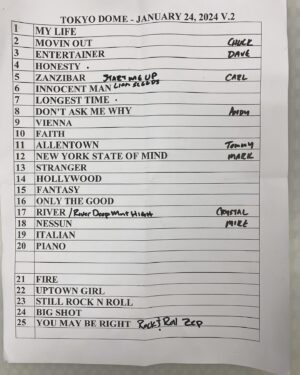 TOKYO DOME - JANUARY 24, 2024 V.2
1 MY LIFE
2 MOVIN OUT CHUCK
3 ENTERTAINER DAVE
4 HONESTY .
5 ZANZIBAR START ME UP CARL
6 INNOCENT MAN LION SLEEPS
7 LONGEST TIME .
8 DON'T ASK ME WHY ANDY
9 VIENNA
10 FAITH
11 ALLENTOWN TOMMY
12 NEW YORK STATE OF MIND MARK
13 STRANGER
14 HOLLYWOOD
15 FANTASY
16 ONLY THE GOOD
17 RIVER /River Deep Mount High CRYSTAL
18 NESSUN MIKE
19 ITALIAN
20 PIANO
21 FIRE
22 UPTOWN GIRL
23 STILL ROCK N ROLL
24 BIG SHOT
25 YOU MAY BE RIGHT Rock + Roll Zep